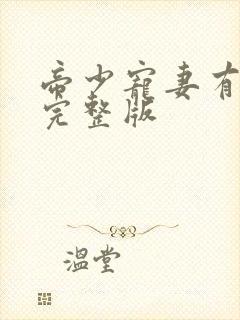 帝少宠妻有
完整版
温堂